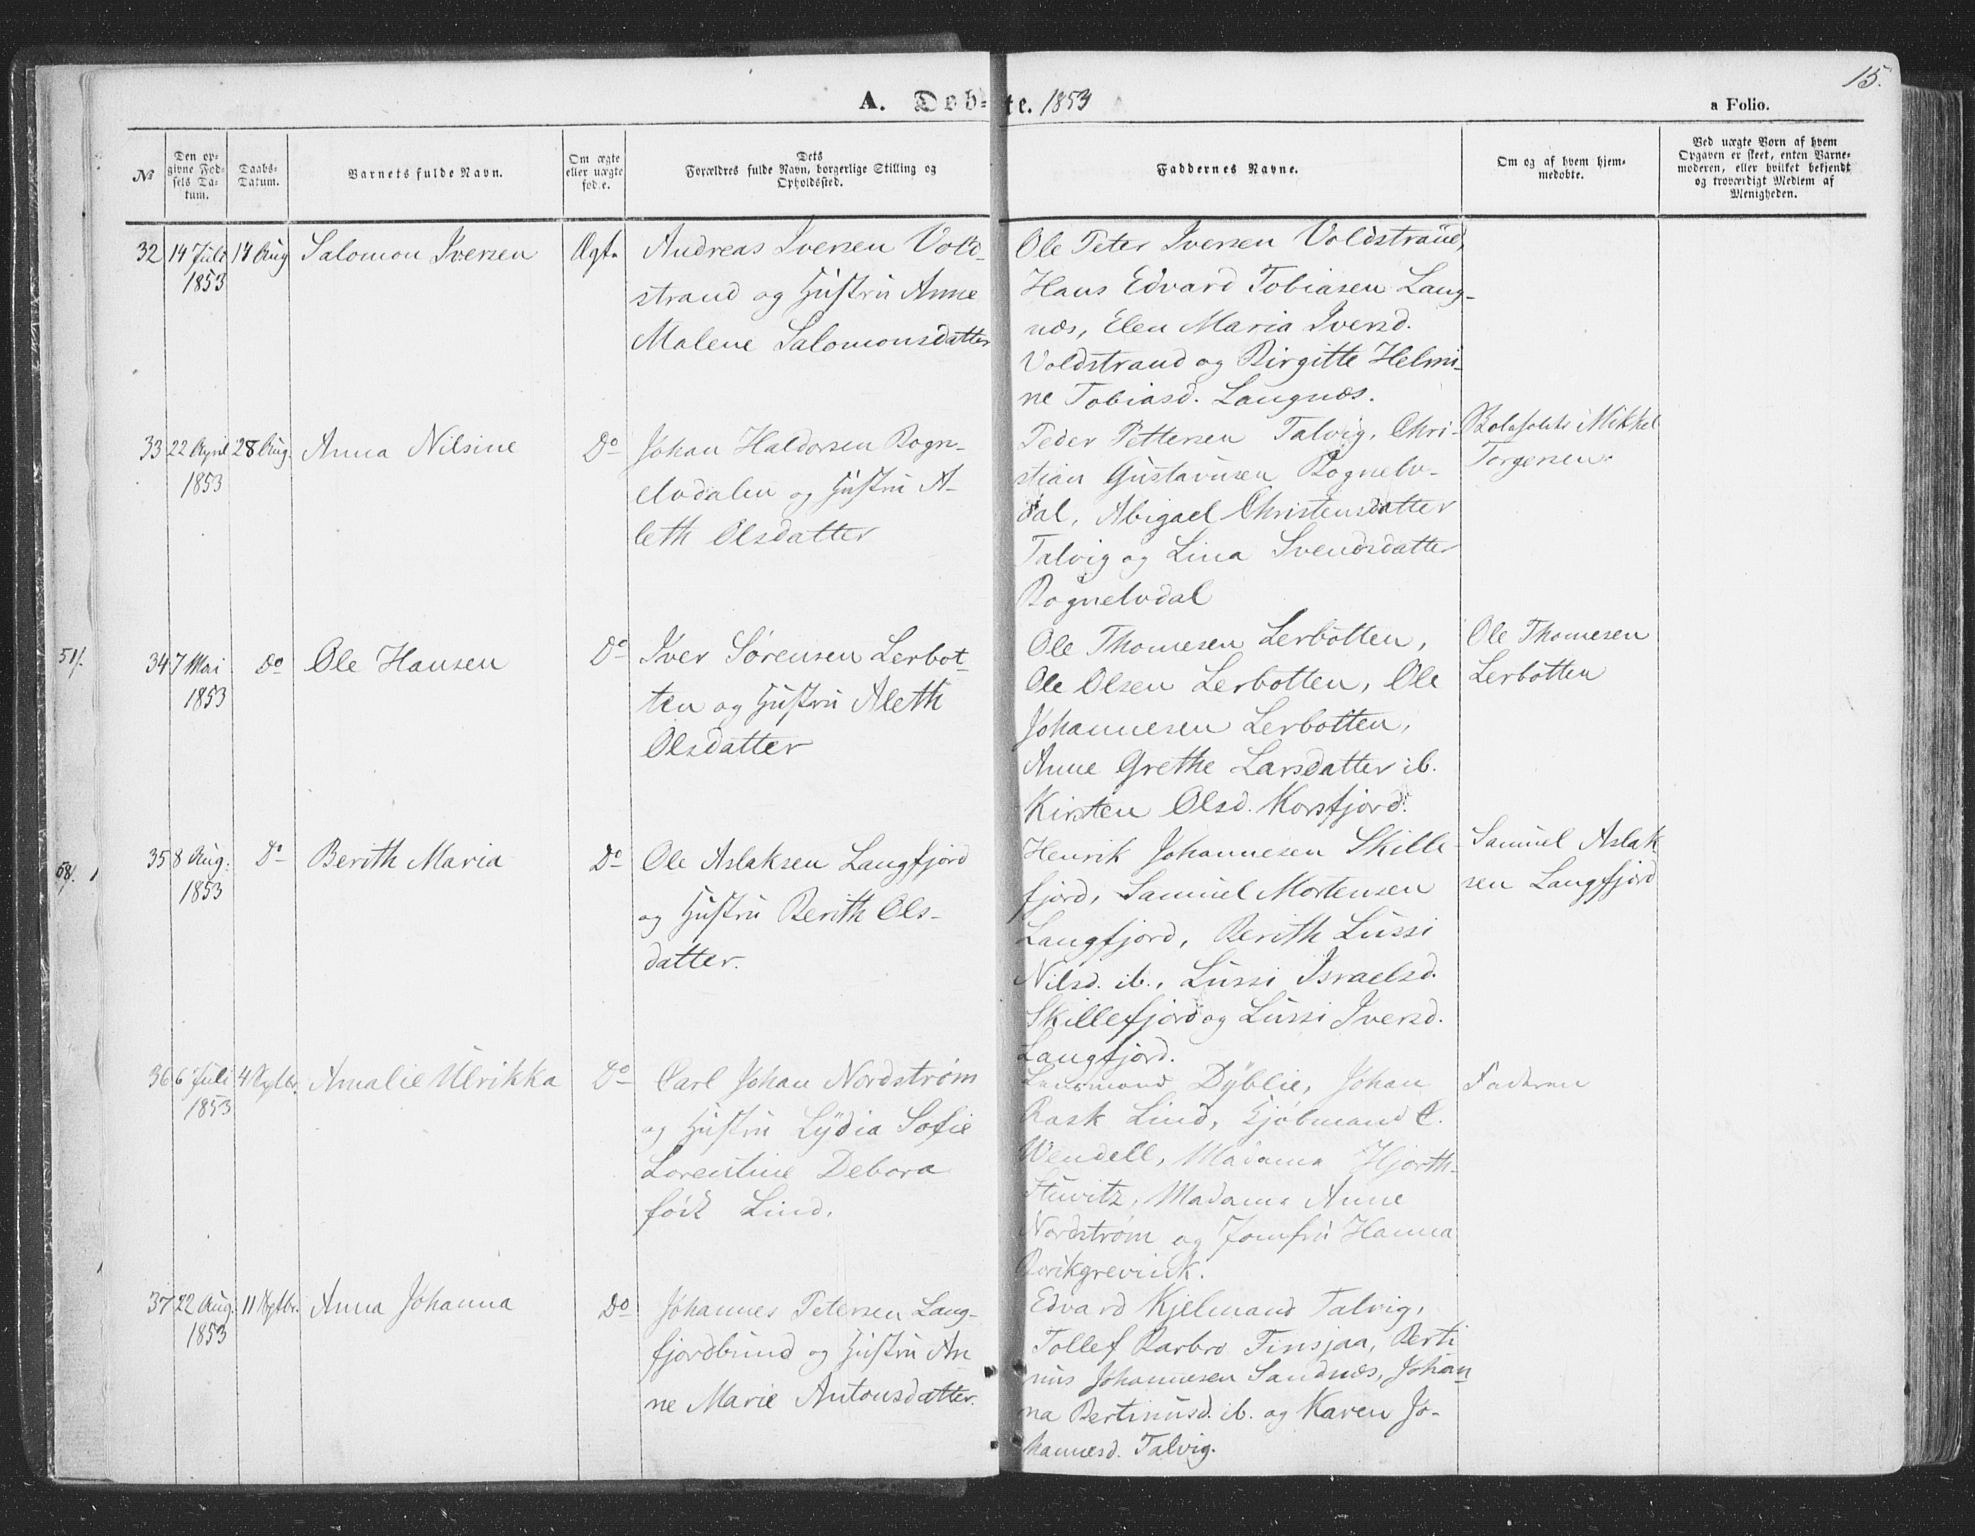 15.
A. Døb-te. 1853
a Folio.
No
Den op-
givne Fød-
sels Da-
tum.
Daabs-
Datum.
Barnets fulde Navn.
Om ægte
eller uægte
fød.e.
Dets
Forældres fulde Navn, borgerlige Stilling og
Opholdssted.
Faddernes Navne.
Om og af hvem hjem-
medøbte.
Ved uægte Børn af hvem
Opgaven er skeet, enten Barne-
moderen, eller hvilket bekjendt
og troværdigt Medlem af
Menigheden.
32
14 Juli
1853
14 Aug
Salomon Iversen
Ægt.
Andreas Iversen Vold-
strand og Hustru Anne
Malene Salomonsdatter
Ole Peter Iversen Voldstrand,
Hans Edvard Tobiasen Lang-
næs, Elen Maria Iversd.
Voldstrand og Birgitte Helmi-
ne Tobiasd. Langnæs.
33
22 April
1853
28 Aug.
Anna Nilsine
Do
Johan Haldorsen Rogn-
elvdalen og Hustru A-
leth Olsdatter
Peder Pettersen Talvig, Chri-
stian Gustavusen Rognelv-
dal, Abigael Christensdatter
Talvig og Lina Svendsdatter
Rognelvdal
Mikkel
Torgersen.
51/.
34
7 Mai
1853
Do
Ole Hansen
Do
Iver Sørensen Lerbot-
ten og Hustru Aleth
Olsdatter
Ole Thomesen Lerbotten,
Ole Olsen Lerbotten, Ole
Johannesen Lerbotten,
Anne Grethe Larsdatter ib.
Kirsten Olsd. Korsfjord.
Ole Thomesen
Lerbotten
58/.
35
8 Aug.
1853
Do
Berith Maria
Do
Ole Aslaksen Langfjord
og Hustru Berith Ols-
datter.
Henrik Johannesen Skille-
fjord, Samuel Mortensen
Langfjord, Berith Lussi
Nilsd. ib., Lussi Israelsd.
Skillefjord og Lussi Iversd.
Langfjord.
Samuel Aslak
sen Langfjord
36
6 Juli
1853
4 Sptbr.
Amalie Ulrikka
Do
Carl Johan Nordstrøm
og Hustru Lydia Sofie
Lorentine Debora
født Lind.
Lensmand Dyblie, Johan
Rask Lind, Kjøbmand C.
Wendell, Madama Hjorth-
Stuwitz, Madama Anne
Nordstrøm og Jomfru Hanna
Borikgrevink.
Faderen
37
22 Aug.
1853
11 Sptbr.
Anna Johanna
Do
Johannes Petersen Lang-
fjordbund og Hustru An-
ne Marie Antonsdatter.
Edvard Kjelmand Talvig,
Tollef Barbro Finsjaa, Berti
nus Johannesen Sandnæs, Johan-
na Bertinusd. ib. og Karen Jo-
hannesd. Talvig.